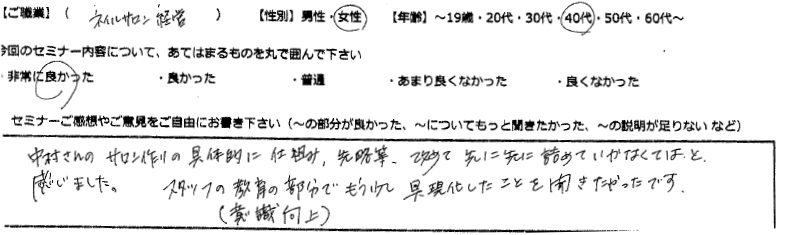 【ご職業】( ネイルサロン経営 ) 【性別】男性・女性 【年齢】〜19歳・20代・30代・40代・50代・60代〜
今回のセミナー内容について、あてはまるものを丸で囲んで下さい
・非常に良かった ・良かった ・普通 ・あまり良くなかった ・良くなかった
セミナーご感想やご意見をご自由にお書き下さい(〜の部分が良かった、〜についてもっと聞きたかった、〜の説明が足りない など)
中村さんの サロン作りの具体的に仕組み、先略等、改めて 先に先に 詰めていかなくてはと
感じました。 スタッフの教育の部分でもう少し 具現化したことを聞きたかったです。
(意識向上)